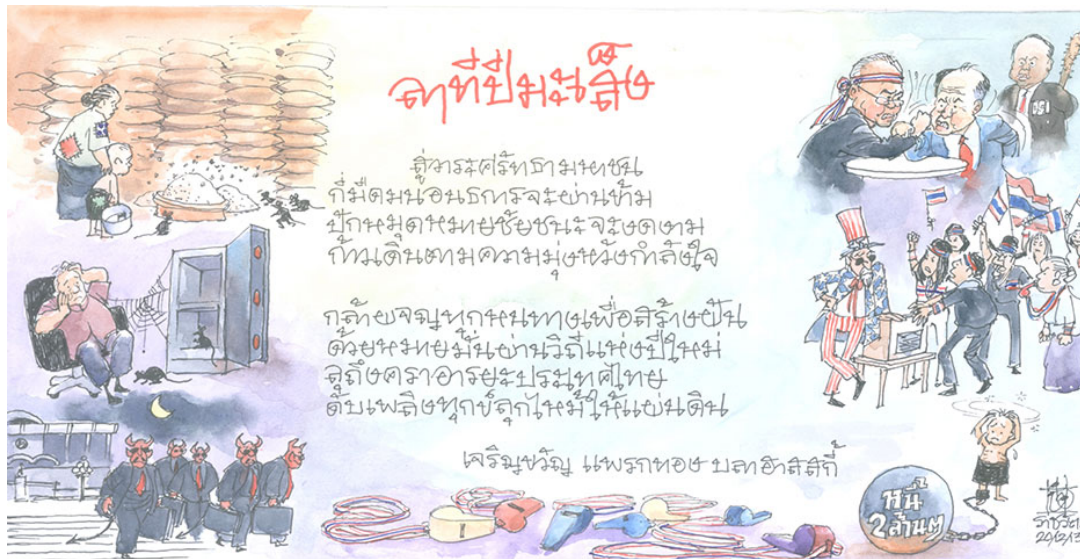 ลาทีปีมะเส็ง
สู่วาระศรัทธามหาชน
ที่มืดมนอนธการจะผ่านข้าม
ปักหมุดหมายชัยชนะจะงดงาม
ก้าวเดินตามความมุ่งหวังกำลังใจ
กล้าผจญทุกหนทางเพื่อสร้างฝัน
ด้วยหมายมั่นผ่านวิถีแห่งปีใหม่
ลุถึงคราอารยะประเทศไทย
ดับเพลิงทุกข์ลุกไหม้ให้แผ่นดิน
เจริญขวัญ แพรกทอง บลาฮาสสกี้
DSI
หนี้
2 ล้านๆ